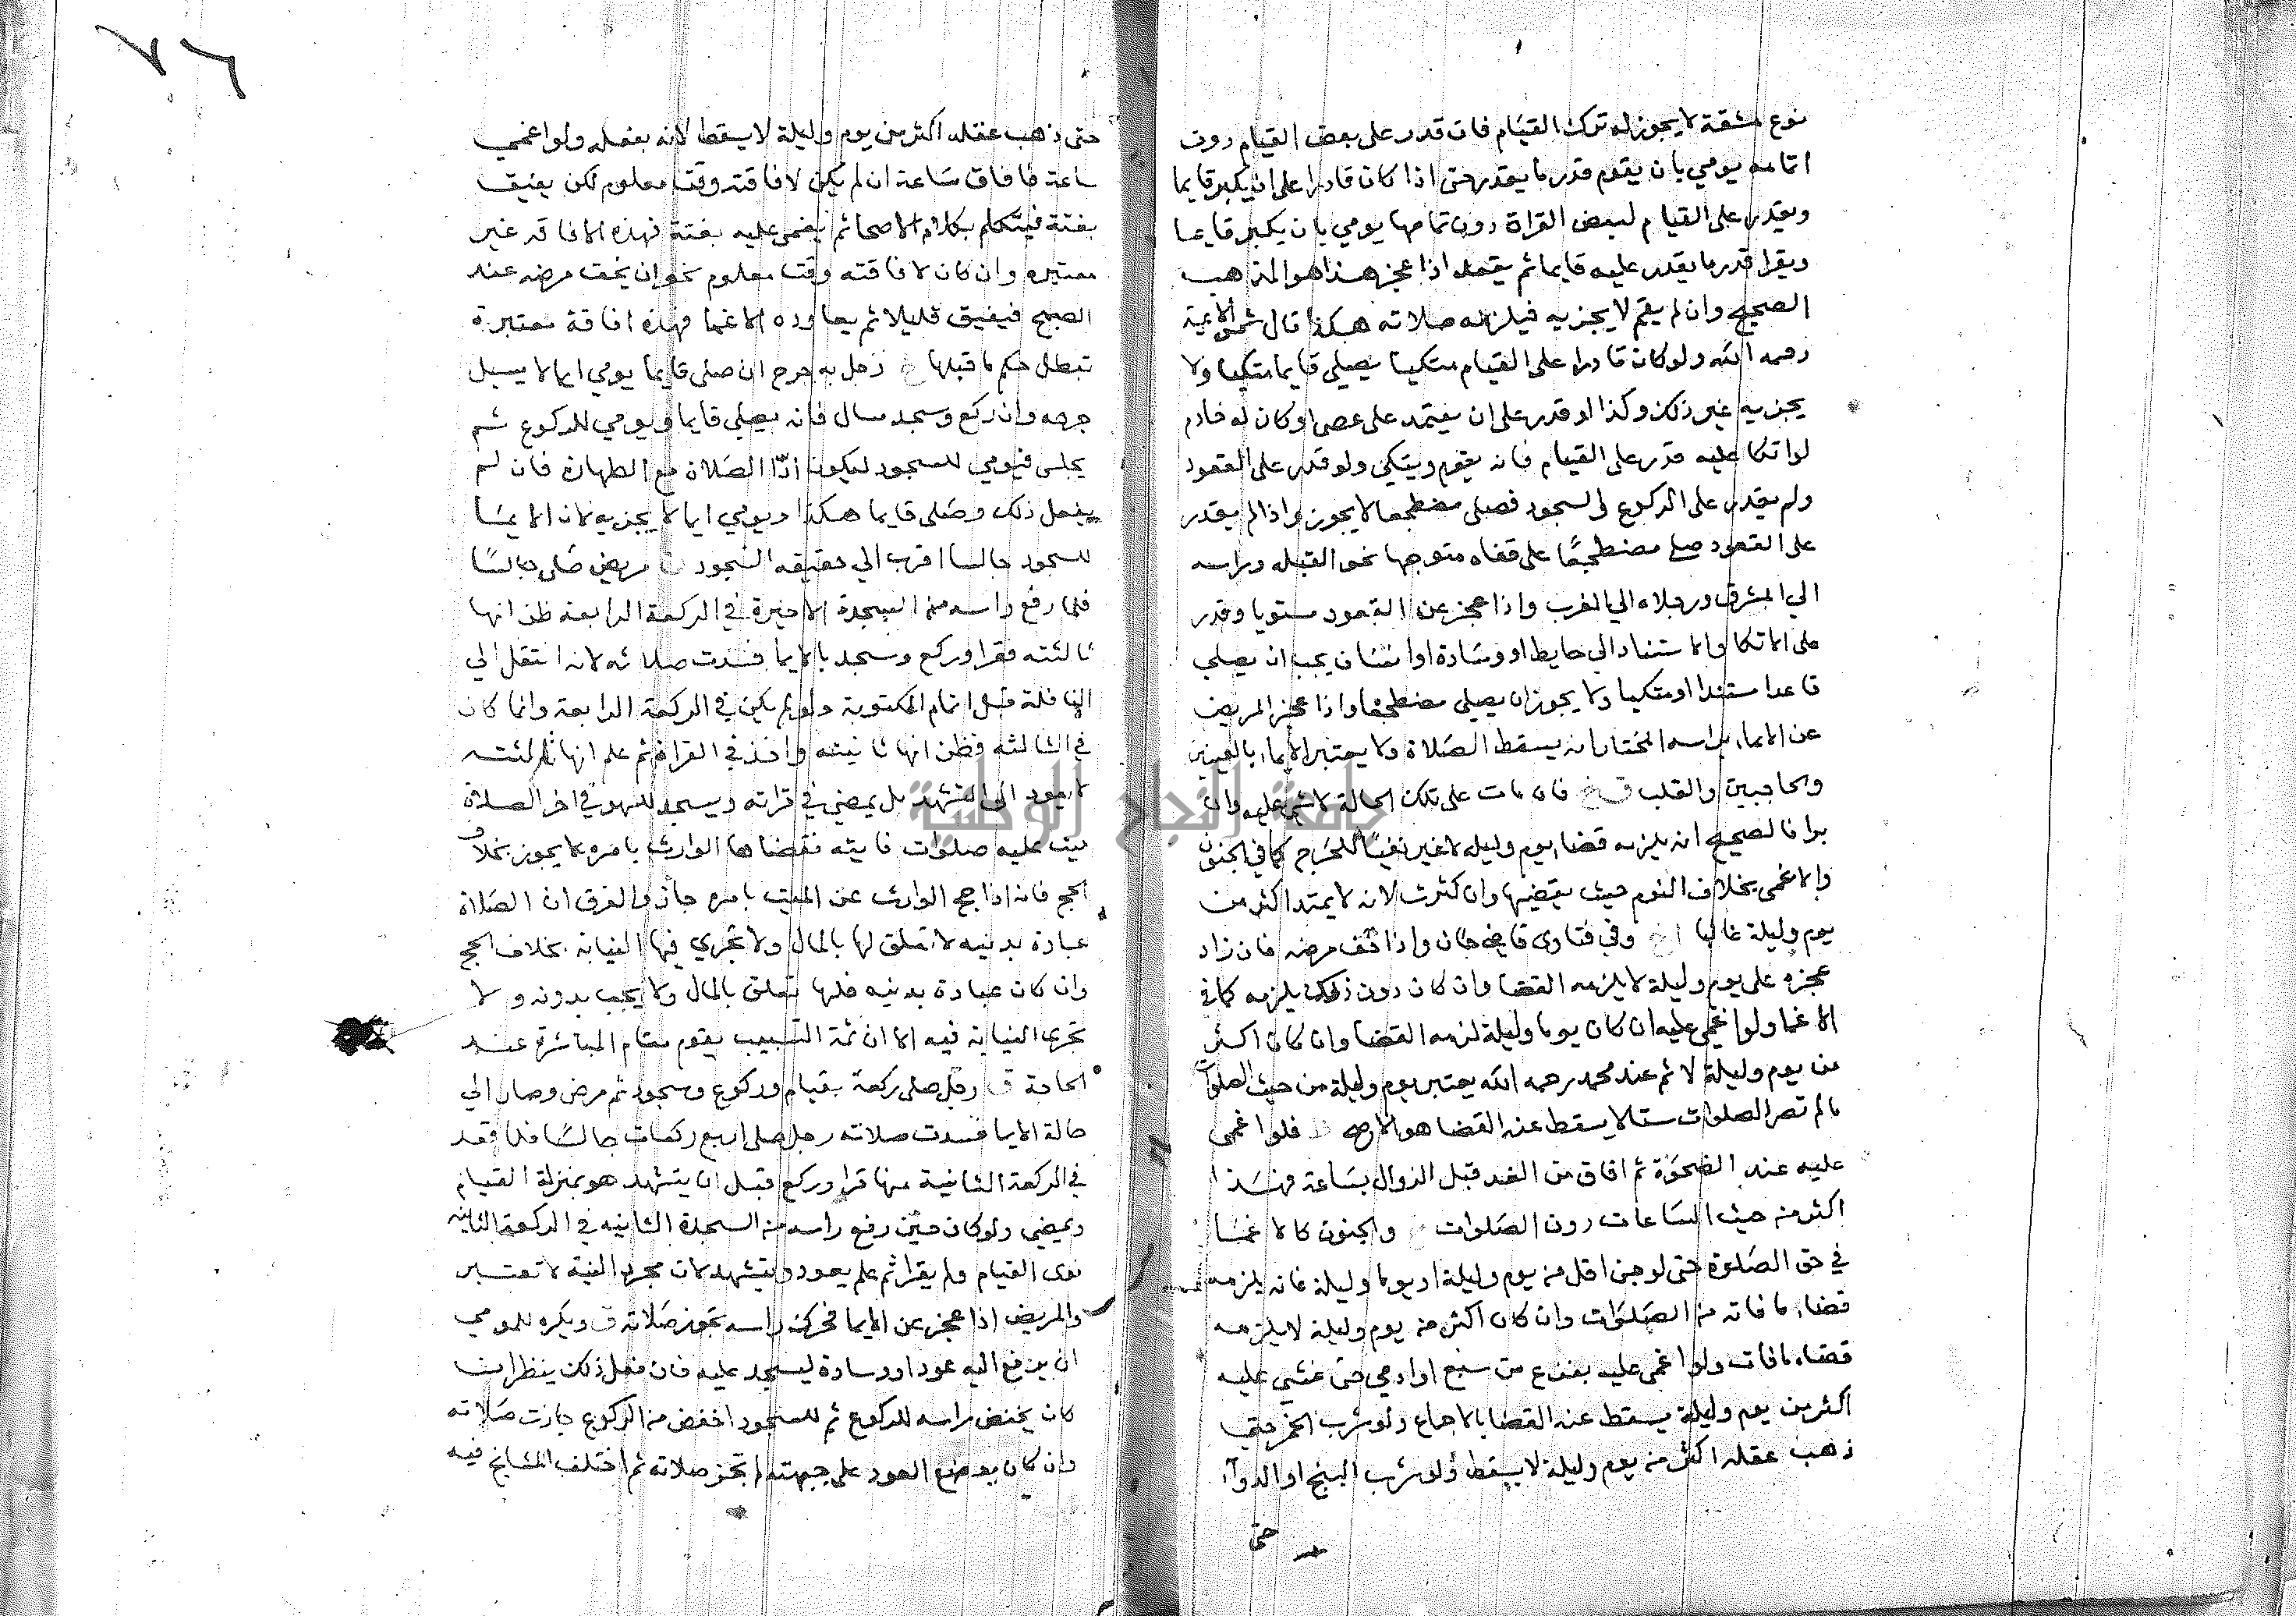 نوع مشقة لا يجوز له ترك القيام فان قدر على بعض القيام دون
اتمامه يومي بان يقوم قدر ما يقدر حتى اذا كان قادرا على ان يكبر قايما
ويقدر على القيام لبعض القراة دون تمامها يومي بان يكبر قايما
ويقرا قدر ما يقدر عليه قايما ثم يقعد اذا عجز هذا هو المذهب
الصحيح وان لم يقم لا يجزيه فيلزمه صلاته هكذا قال شمس الايمة
رحمه الله ولو كان قادرا على القيام متكيا يصلي قايما متكيا ولا
يجزيه غير ذلك وكذا لو قدر على ان يعتمد على عصى او كان له خادم
لو اتكا عليه قدر على القيام فانه يقوم ويتكي ولو قدر على القعود
ولم يقدر على الركوع والسجود فصلى مضطجعا لا يجوز واذا لم يقدر
على القعود صلى مضطجعا على قفاه متوجها نحو القبله وراسه
الى المشرق ورجلاه الى المغرب واذا عجز عن القعود مستويا وقدر
على الاتكا والاستناد الى حايط او وسادة او انسان يجب ان يصلي
قاعدا مستندا او متكيا ولا يجوز ان يصلي مضطجعا واذا عجز المريض
عن الايماء براسه المختار انه يسقط الصلاة ولا يعتبر الايماء بالعينين
والحاجبين والقلب فان مات على تلك الحالة لا شي عليه وان
برا فالصحيح انه يلزمه قضا يوم وليله لا غير نفيا للحرج كما في الجنون
والاغمى بخلاف النوم حيث يقضيها وان كثرت لانه لا يمتد اكثر من
يوم وليلة غالبا وفي فتاوى قاضي خان واذا خف مرضه فان زاد
عجزه على يوم وليلة لا يلزمه القضا وان كان دون ذلك يلزمه كما في
الاغما ولو اغمي عليه ان كان يوما وليلة لزمه القضا وان كان اكثر
من يوم وليلة لا ثم عند محمد رحمه الله يعتبر يوم وليلة من حيث الصلوات
ما لم تصر الصلوات ستا لا يسقط عنه القضا هو الاصح فلو اغمى
عليه عند الضحوة ثم افاق من الغد قبل الزوال بساعة فهذا
اكثر من حيث الساعات دون الصلوات والجنون كالاغما
في حق الصلوة حتى لو جن اقل من يوم وليلة او يوما وليلة فانه يلزمه
قضاء ما فاته من الصلوات وان كان اكثر من يوم وليلة لا يلزمه
قضاء ما فات ولو اغمى عليه بفزع من سبع او ادمي حتى غشي عليه
اكثر من يوم وليلة يسقط عنه القضا بالاجماع ولو شرب الخمر حتى
ذهب عقله اكثر من يوم وليلة لا يسقط ولو شرب البنج او الدوآء
حتى
٧٦
حتى ذهب عقله اكثر من يوم وليلة لا يسقط لانه بفعله ولو اغمي
ساعة فافاق ساعة ان لم يكن لافاقته وقت معلوم لكن يفيق
بغتة فيتكلم بكلام الاصحا ثم يغمى عليه بغتة فهذه الافاقه غير
معتبره وان كان لافاقته وقت معلوم نحو ان يخف مرضه عند
الصبح فيفيق قليلا ثم يعاوده الاغما فهذه افاقة معتبرة
تبطل حكم ما قبلها رجل به جرح ان صلى قايما يومي ايما لا يسيل
جرحه وان ركع وسجد سال فانه يصلي قايما ويومي للركوع ثم
يجلس فيومي للسجود ليكون ادا الصلاة مع الطهارة فان لم
يفعل ذلك وصلى قايما هكذا ويومي ايما لا يجزيه لان الايما
للسجود جالسا اقرب الى حقيقه السجود مريض صلى جالسا
فلما رفع راسه من السجدة الاخيرة في الركعة الرابعه ظن انها
ثالثته فقرا وركع وسجد بالايما فسدت صلاته لانه انتقل الى
النافلة قبل اتمام المكتوبة ولو لم يكن في الركعة الرابعة وانما كان
في الثالثه فظن انها ثانيته واخذ في القراة ثم علم انها ثالثته
لا يعود الى التشهد بل يمضي في قراته ويسجد للسهو في اخر الصلاة
ميت عليه صلوات فايته فقضاها الوارث بامره لا يجوز بخلاف
الحج فانه اذا حج الوارث عن الميت بامره جاز والفرق ان الصلاة
عبادة بدنيه لا تعلق لها بالمال ولا تجري فيها النيابة بخلاف الحج
وان كان عبادة بدنيه فلها تعلق بالمال ولا يجب بدونه ولا
تجرى النيابة فيه الا ان ثمة التسبيب يقوم مقام المباشرة عند
الحاجة رجل صلى ركعة بقيام وركوع وسجود ثم مرض وصار الى
حالة الايما فسدت صلاته رجل صلى اربع ركعات جالسا فلما قعد
في الركعة الثانية منها قرا وركع قبل ان يتشهد هو بمنزلة القيام
ويمضي ولو كان حين رفع راسه من السجدة الثانيه في الركعة الثانيه
نوى القيام ولم يقرا ثم علم يعود ويتشهد لان مجرد النية لا تعتبر
والمريض اذا عجز عن الايما فحرك راسه تجوز صلاته ويكره للمومي
ان يرفع اليه عود او وسادة ليسجد عليه فان فعل ذلك ينظر ان
كان يخفض راسه للركوع ثم للسجود اخفض من الركوع جازت صلاته
وان كان يوضع العود على جبهته لم تجز صلاته ثم اختلف المشايخ فيه
جامعة النجاح الوطنية